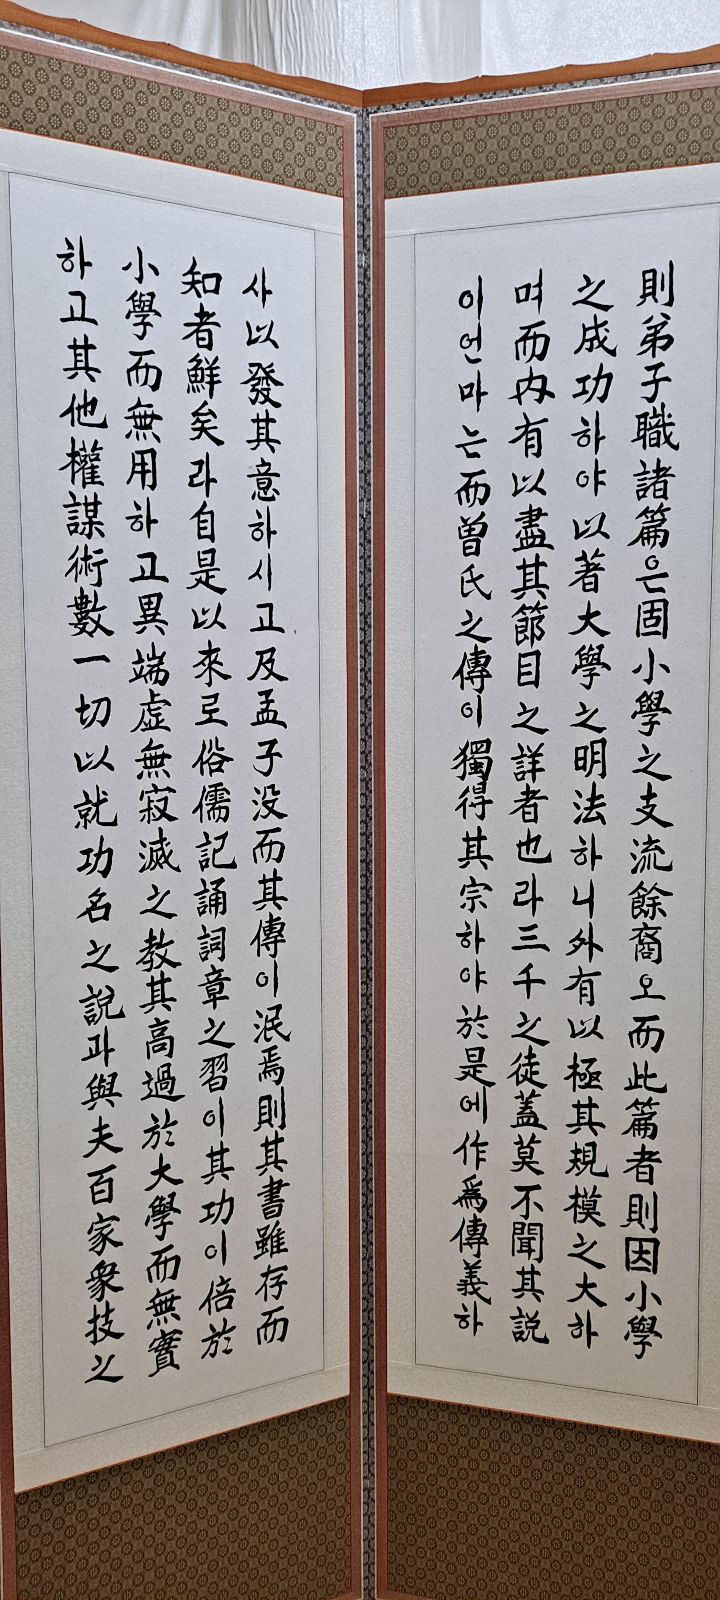 則弟子職諸篇은固小學之支流餘裔오而此篇者則因小學
之成功하야以著大學之明法하니外有以極其規模之大하
며而內有以盡其節目之詳者也라三千之徒蓋莫不聞其説
이언마는而曽氏之傳이獨得其宗하야於是에作爲傳義하
사以發其意하시고及孟子没而其傳이泯焉則其書雖存而
知者鮮矣라自是以來로俗儒記誦詞章之習이其功이倍於
小學而無用하고異端虛無寂滅之教其高過於大學而無實
하고其他權謀術數一切以就功名之說과與夫百家衆技之